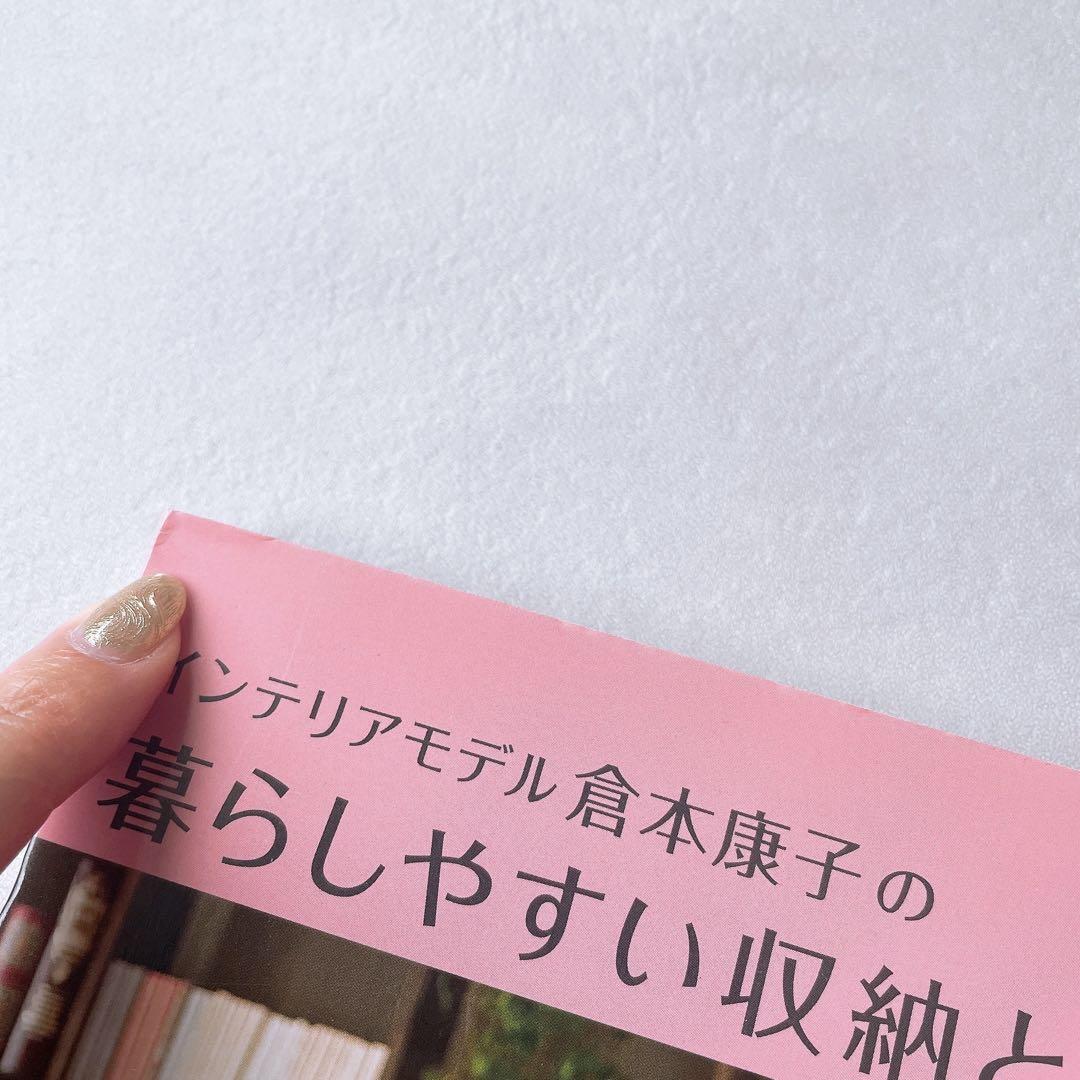 インテリアモデル倉本康子の
暮らしやすい収納と